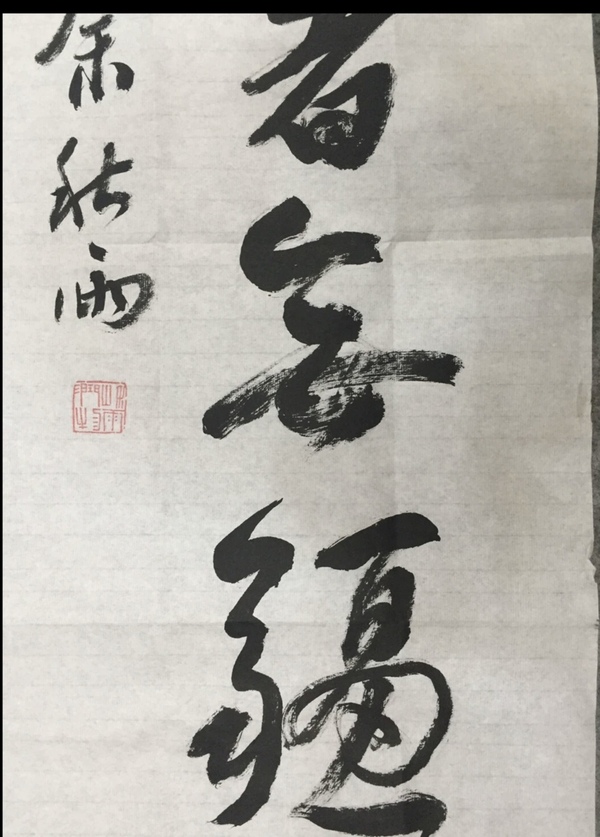 者無疆
余秋雨